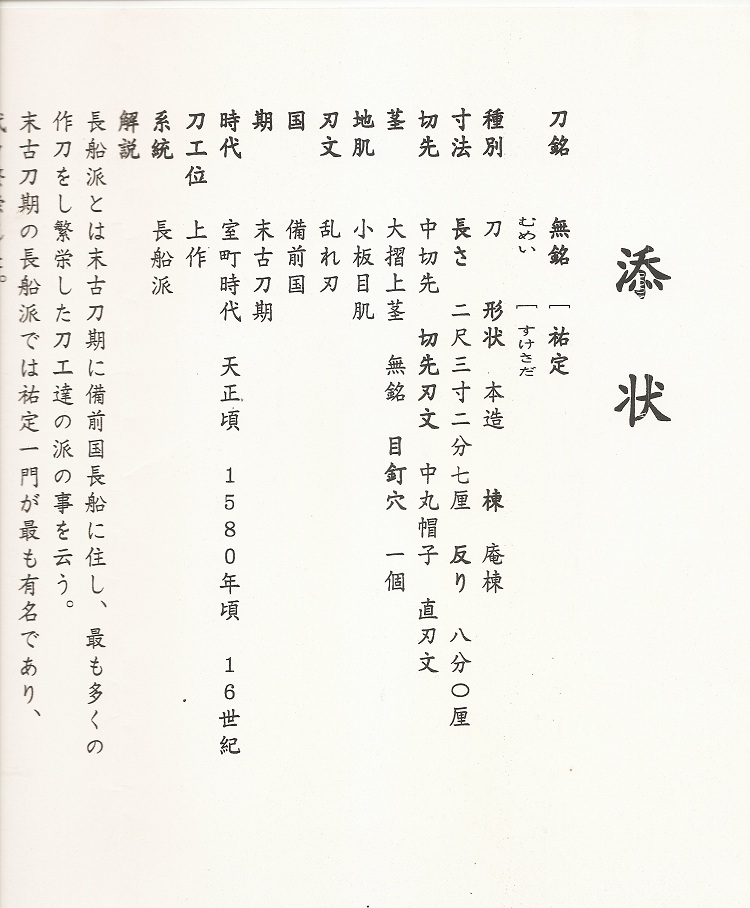 添状
刀銘　無銘　［祐定
むめい　［すけさだ
種別　刀　形状　本造　棟　庵棟
寸法　長さ　二尺三寸二分七厘　反り　八分〇厘
切先　中切先　切先刃文　中丸帽子　直刃文
茎　大摺上茎　無銘　目釘穴　一個
地肌　小板目肌
刃文　乱れ刃
国　備前国
期　末古刀期
時代　室町時代　天正頃　1580年頃　16世紀
刀工位　上作
系統　長船派
解説
長船派とは末古刀期に備前国長船に住し、最も多くの
作刀をし繁栄した刀工達の派の事を云う。
末古刀期の長船派では祐定一門が最も有名であり、